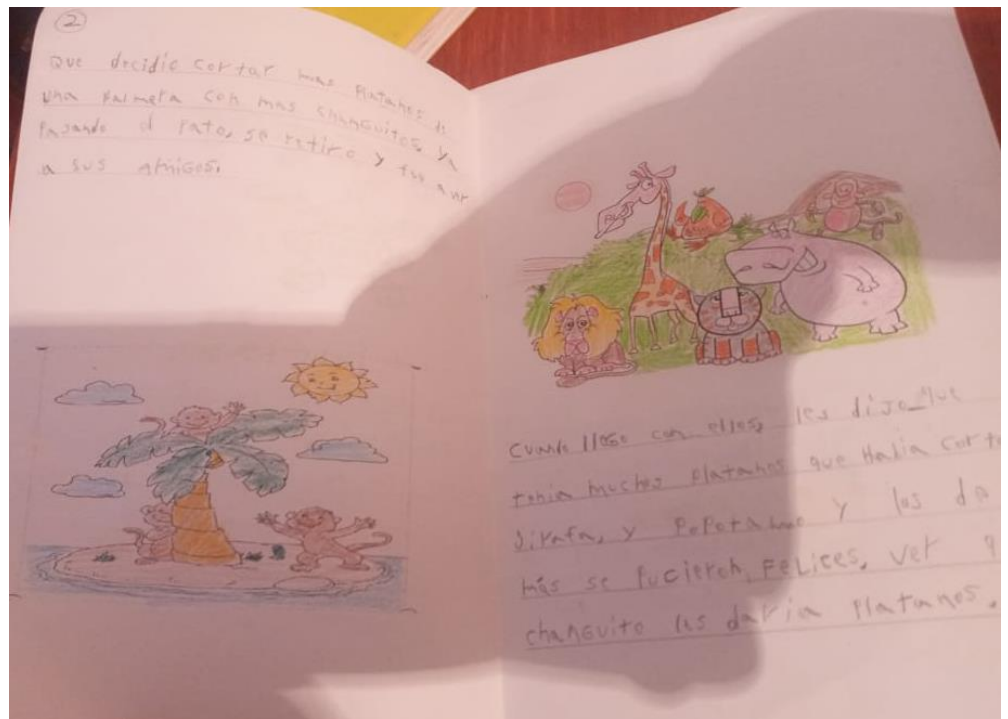 2
Que decidio cortar mas Platanos de
una Palmera con mas changuitos, ya
Pasando el rato, se retiro y fue a ver
a sus amigos.
Cuando llego con ellos, les dijo que
tenia muchos Platanos que Habia corta
Jirafa, y PoPotamo y los de
más se Pucieron FeLices, ver q
changuito les daria Platanos.